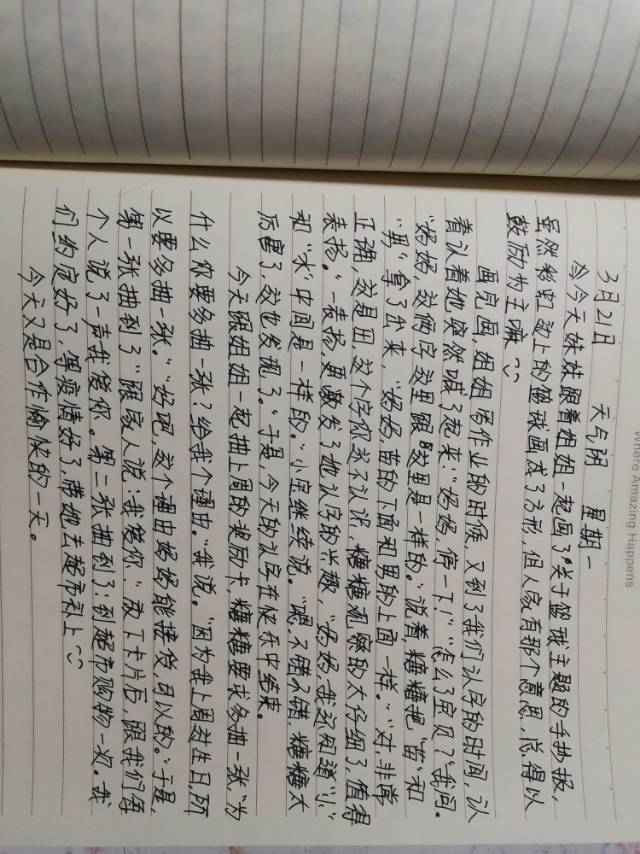 Where Amazing Happens
3月21日 天气阴 星期一
今天妹妹跟着姐姐一起画了关于篮球主题的手抄报,
虽然彩虹边上的篮球画成了方形,但人家有那个意思,总得以
鼓励为主嘛
画完画,姐姐写作业的时候,又到了我们认字的时间,认
着认着她突然喊了起来:“妈妈,停一下!”“怎么了宝贝?”我问。
“妈妈,这俩字这里跟这里是一样的。”说着,糖糖把“苗”和
“男”拿了出来,“妈妈苗的下面和男的上面一样。”“对非常
正确,这是田,这个字你还不认识,糖糖观察的太仔细了,值得
表扬。”一表扬,更激发了她认字的兴趣,“妈妈,我还知道“小”
和“水”中间是一样的。”小宝继续说。“嗯,不错不错,糖糖太
厉害了,这也发现了。”于是,今天的认字在快乐中结束。
今天跟姐姐一起抽上周的奖励卡,糖糖要求多抽一张,“为
什么你要多抽一张?给我个理由。”我说。“因为我上周过生日,所
以要多抽一张。”“好吧,这个理由妈妈能接受,可以的。”于是,
第一张抽到了“跟家人说:我爱你”,放下卡片后,跟我们每
个人说了一声我爱你。第二张抽到了:到超市购物一次。我
们约定好了,等疫情好了,带她去超市补上
今天又是合作愉快的一天。